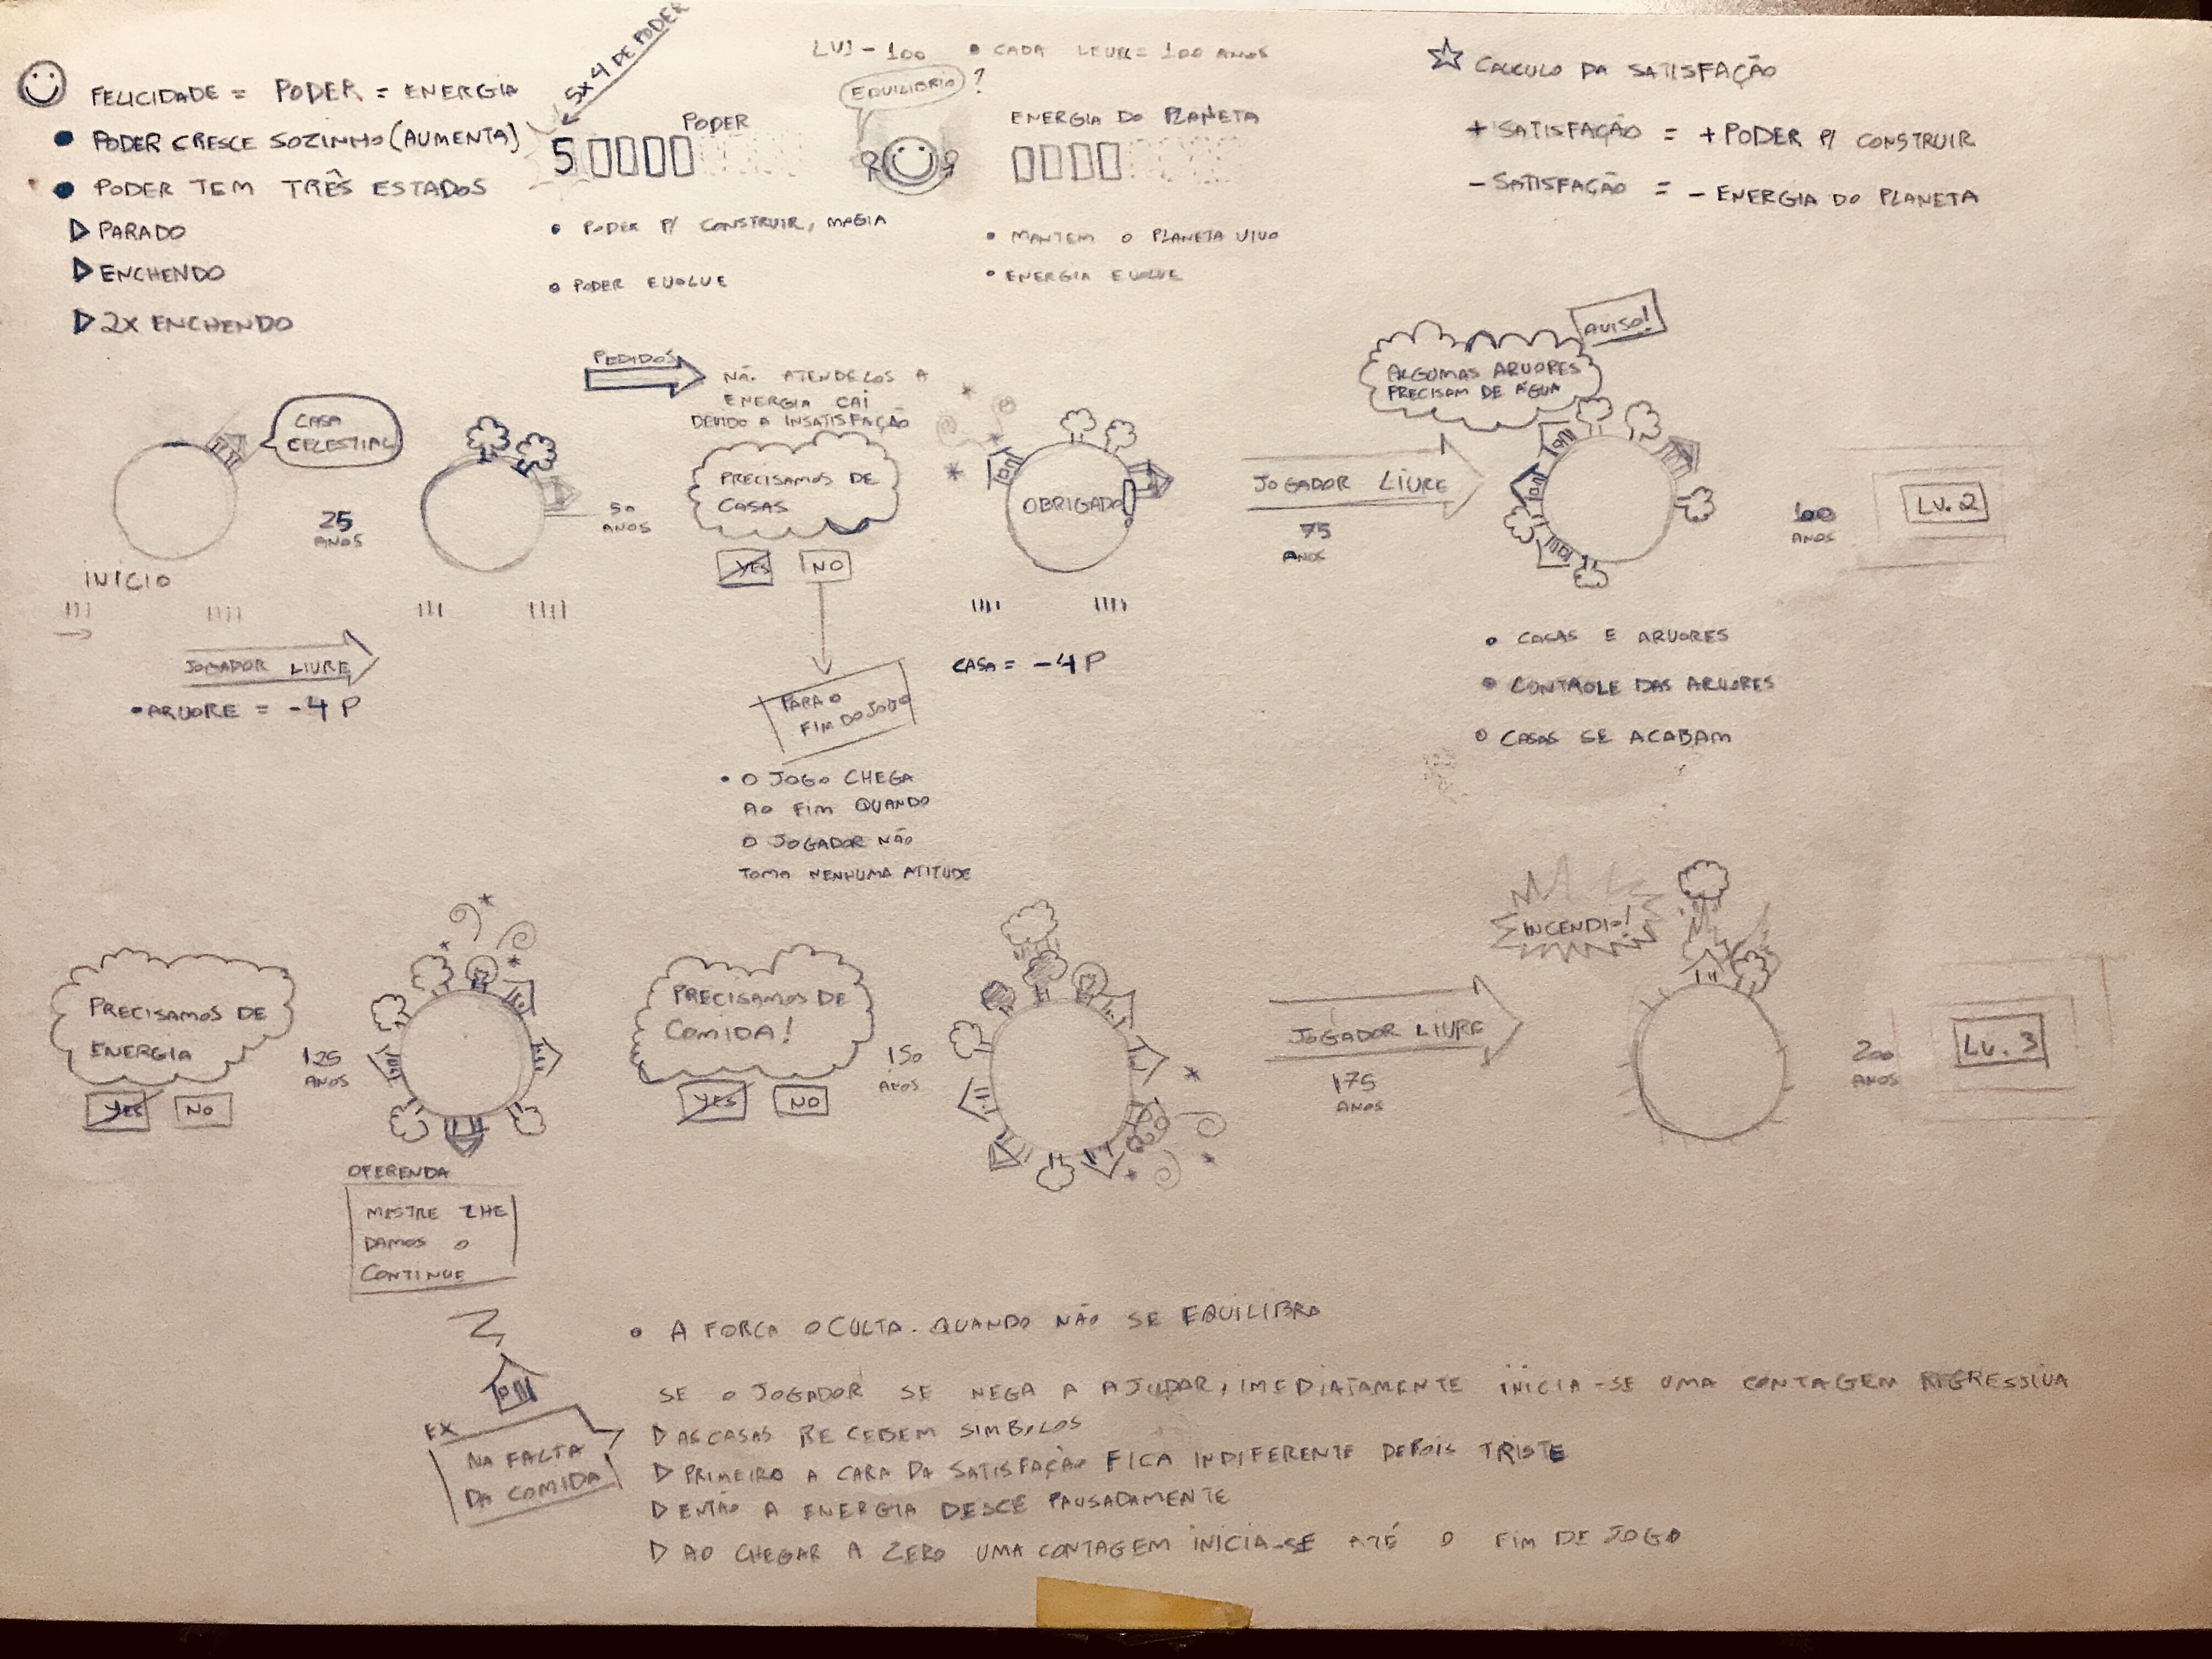 FELICIDADE = PODER = ENERGIA
• PODER CRESCE SOZINHO (AUMENTA)
• PODER TEM TRÊS ESTADOS
▷ PARADO
▷ ENCHENDO
▷ 2X ENCHENDO
5X 4 DE PODER
5
PODER
• PODER P/ CONSTRUIR, MAGIA
• PODER EVOLUE
LV1 - 100 • CADA LEVEL = 100 ANOS
EQUILIBRIO ?
ENERGIA DO PLANETA
• MANTEM O PLANETA VIVO
• ENERGIA EVOLUE
☆ CALCULO DA SATISFAÇÃO
+ SATISFAÇÃO = + PODER P/ CONSTRUIR
- SATISFAÇÃO = - ENERGIA DO PLANETA
CASA
CELESTIAL
INICIO
25
ANOS
JOGADOR LIVRE
• ARVORE = -4 P
50
ANOS
PEDIDOS
NÃO ATENDELOS A
ENERGIA CAI
DEVIDO A INSATISFAÇÃO
PRECISAMOS DE
CASAS
YES NO
PARA O
FIM DO JOGO
• O JOGO CHEGA
AO FIM QUANDO
O JOGADOR NÃO
TOMA NENHUMA ATITUDE
OBRIGADO!
CASA = -4 P
JOGADOR LIVRE
75
ANOS
AVISO!
ALGUMAS ARVORES
PRECISAM DE ÁGUA
100
ANOS
LV. 2
• CASAS E ARVORES
• CONTROLE DAS ARVORES
• CASAS SE ACABAM
PRECISAMOS DE
ENERGIA
YES NO
125
ANOS
OFERENDA
MESTRE LHE
DAMOS O
CONTINUE
PRECISAMOS DE
COMIDA!
YES NO
150
ANOS
JOGADOR LIVRE
175
ANOS
INCENDIO!
200
ANOS
LV. 3
EX
NA FALTA
DA COMIDA
• A FORCA OCULTA. QUANDO NÃO SE EQUILIBRA
SE O JOGADOR SE NEGA A AJUDAR, IMEDIATAMENTE INICIA-SE UMA CONTAGEM REGRESSIVA
▷ AS CASAS RECEBEM SIMBOLOS
▷ PRIMEIRO A CARA DA SATISFAÇÃO FICA INDIFERENTE DEPOIS TRISTE
▷ ENTÃO A ENERGIA DESCE PAUSADAMENTE
▷ AO CHEGAR A ZERO UMA CONTAGEM INICIA-SE ATÉ O FIM DE JOGO